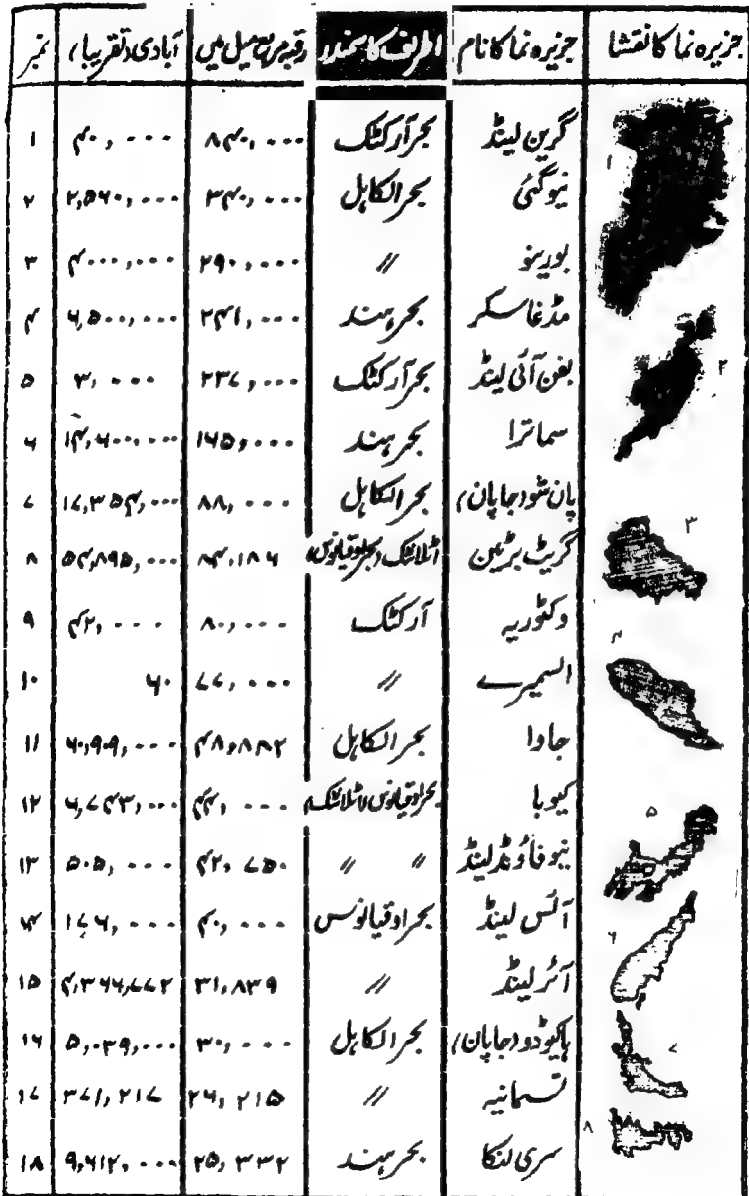 جزیرہ نما کا نقشا | جزیرہ نما کا نام | اطرف کا سمندر | رقبہ مربع میل میں | آبادی (تقریباً) | نمبر
گرین لینڈ | بحر آرکٹک | ۸۴۰,۰۰۰ | ۴۰,۰۰۰ | ۱
نیوگنی | بحر الکاہل | ۳۴۰,۰۰۰ | ۲,۵۶۰,۰۰۰ | ۲
بورینو | // | ۲۹۰,۰۰۰ | ۴۰۰۰,۰۰۰ | ۳
مڈغاسکر | بحر ہند | ۲۴۱,۰۰۰ | ۶,۵۰۰,۰۰۰ | ۴
بفن آئی لینڈ | بحر آرکٹک | ۲۳۷,۰۰۰ | ۳,۰۰۰ | ۵
سماترا | بحر ہند | ۱۶۵,۰۰۰ | ۱۴,۶۰۰,۰۰۰ | ۶
ہان شو (جاپان) | بحر الکاہل | ۸۸,۰۰۰ | ۱۷,۳۵۴,۰۰۰ | ۷
گریٹ برٹین | اٹلانٹک (بحر اوقیانوس) | ۸۴,۱۸۶ | ۵۴,۸۹۵,۰۰۰ | ۸
وکٹوریہ | آرکٹک | ۸۰,۰۰۰ | ۴۲,۰۰۰ | ۹
السمیرے | // | ۷۷,۰۰۰ | ۶۰ | ۱۰
جاوا | بحر الکاہل | ۴۸,۸۴۲ | ۶۰,۹۰۹,۰۰۰ | ۱۱
کیوبا | بحر اوقیانوس (اٹلانٹک) | ۴۴,۰۰۰ | ۶,۷۴۳,۰۰۰ | ۱۲
نیو فاؤنڈ لینڈ | // // | ۴۲,۷۵۰ | ۵۰۵,۰۰۰ | ۱۳
آئس لینڈ | بحر اوقیانوس | ۴۰,۰۰۰ | ۱۷۶,۰۰۰ | ۱۴
آئر لینڈ | // | ۳۱,۸۳۹ | ۴,۳۶۶,۷۷۲ | ۱۵
ہاکیوڈو (جاپان) | بحر الکاہل | ۳۰,۰۰۰ | ۵,۰۳۹,۰۰۰ | ۱۶
تسمانیہ | // | ۲۶,۲۱۵ | ۳۷۱,۲۱۷ | ۱۷
سری لنکا | بحر ہند | ۲۵,۳۳۲ | ۹,۶۱۲,۰۰۰ | ۱۸
۱
۲
۳
۴
۵
۶
۷
۸